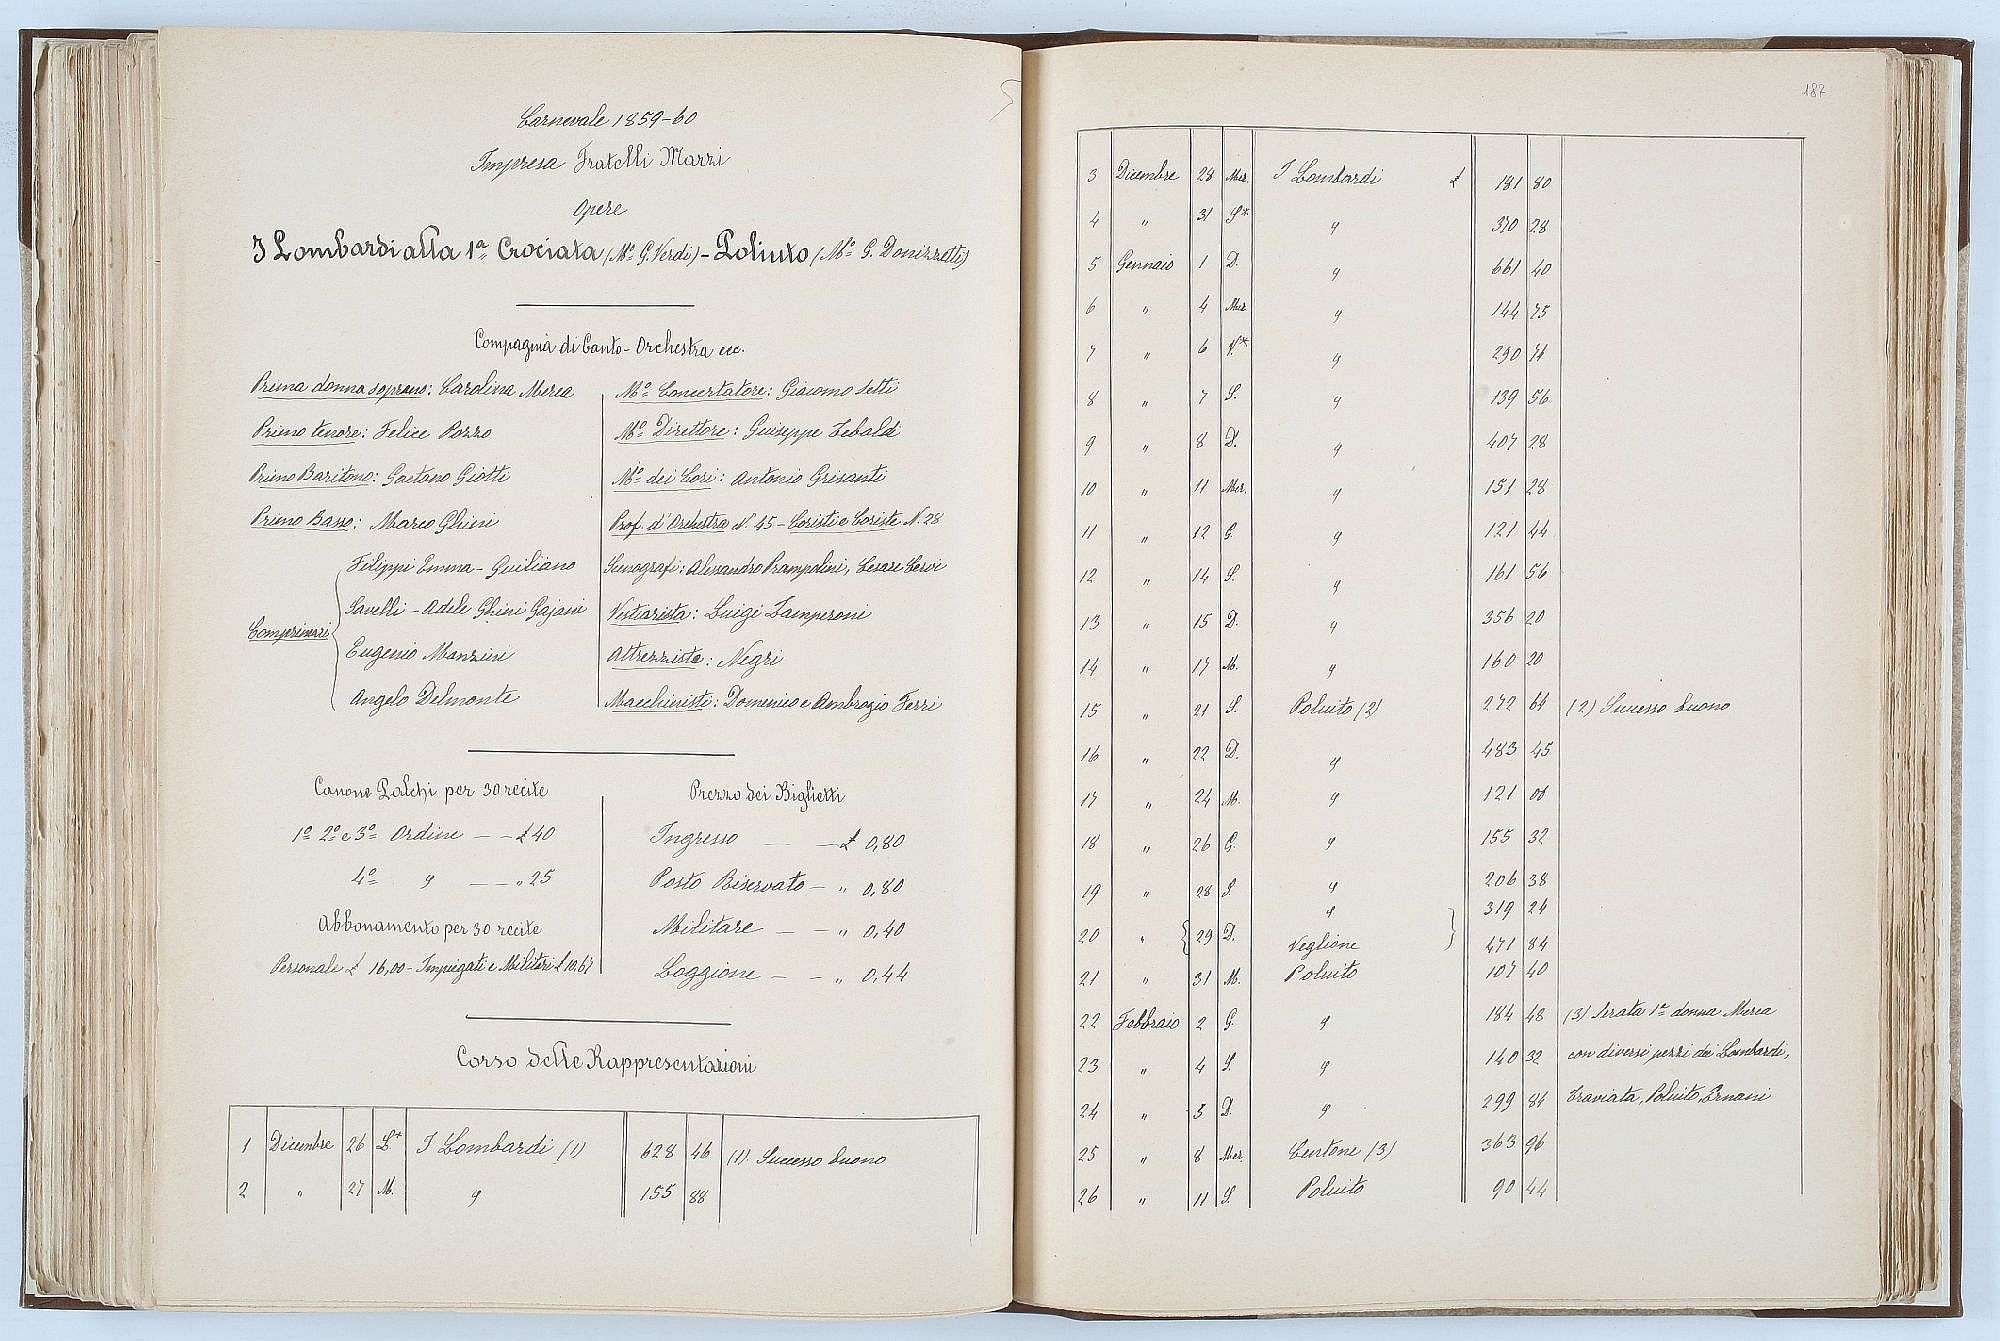 Carnevale 1859-60
Impresa Fratelli Marzi
Opere
I Lombardi alla 1a Crociata (Mo G. Verdi) - Poliuto (Mo G. Donizzetti)
Compagnia di Canto - Orchestra ecc.
Prima donna soprano: Carolina Merea
Primo tenore: Felice Pozzo
Primo Baritono: Gaetano Giotti
Primo Basso: Marco Ghini
Comprimari
Filippi Emma - Guiliano
Savelli - Adele Ghini Gajani
Eugenio Manzini
Angelo Delmonte
Mo Concertatore: Giacomo Setti
Mo Direttore: Guiseppe Tebaldi
Mo dei Cori: Antonio Grisanti
Prof. d'Orchestra N. 45 - Coristi e Coriste N. 28
Scenografi: Alessandro Prampolini, Cesare Cervi
Vestiarista: Luigi Zamperoni
Attrezzista: Negri
Macchinisti: Domenico e Ambrogio Ferri
Canone Palchi per 30 recite
1o 2o e 3o Ordine — — £ 40
4o " — — " 25
Abbonamento per 30 recite
Personale £ 16,00 - Impiegati e Militari £ 10.67
Prezzo dei Biglietti
Ingresso — — £ 0,80
Posto Riservato — " 0,80
Militare — — " 0,40
Loggione — — " 0,44
Corso delle Rappresentazioni
1 Dicembre 26 L* I Lombardi (1) 628 46 (1) Successo buono
2 " 27 M. " 155 88
187
3 Dicembre 28 Mer. I Lombardi £ 181 80
4 " 31 S* " 370 28
5 Gennaio 1 D. " 661 40
6 " 4 Mer " 144 75
7 " 6 V* " 290 71
8 " 7 S. " 139 56
9 " 8 D. " 407 28
10 " 11 Mer. " 151 28
11 " 12 G. " 121 44
12 " 14 S. " 161 56
13 " 15 D. " 356 20
14 " 17 M. " 160 20
15 " 21 S. Poliuto (2) 272 64 (2) Successo buono
16 " 22 D. " 483 45
17 " 24 M. " 121 00
18 " 26 G. " 155 32
19 " 28 S. " 206 38
20 " 29 D. " 319 24
Veglione 471 84
21 " 31 M. Poliuto 107 40
22 Febbraio 2 G. " 184 48 (3) Serata 1a donna Merea
23 " 4 S. " 140 32 con diversi pezzi dei Lombardi,
24 " 5 D. " 299 84 Traviata, Poliuto, Ernani
25 " 8 Mer. Centone (3) 363 96
26 " 11 S. Poliuto 90 44